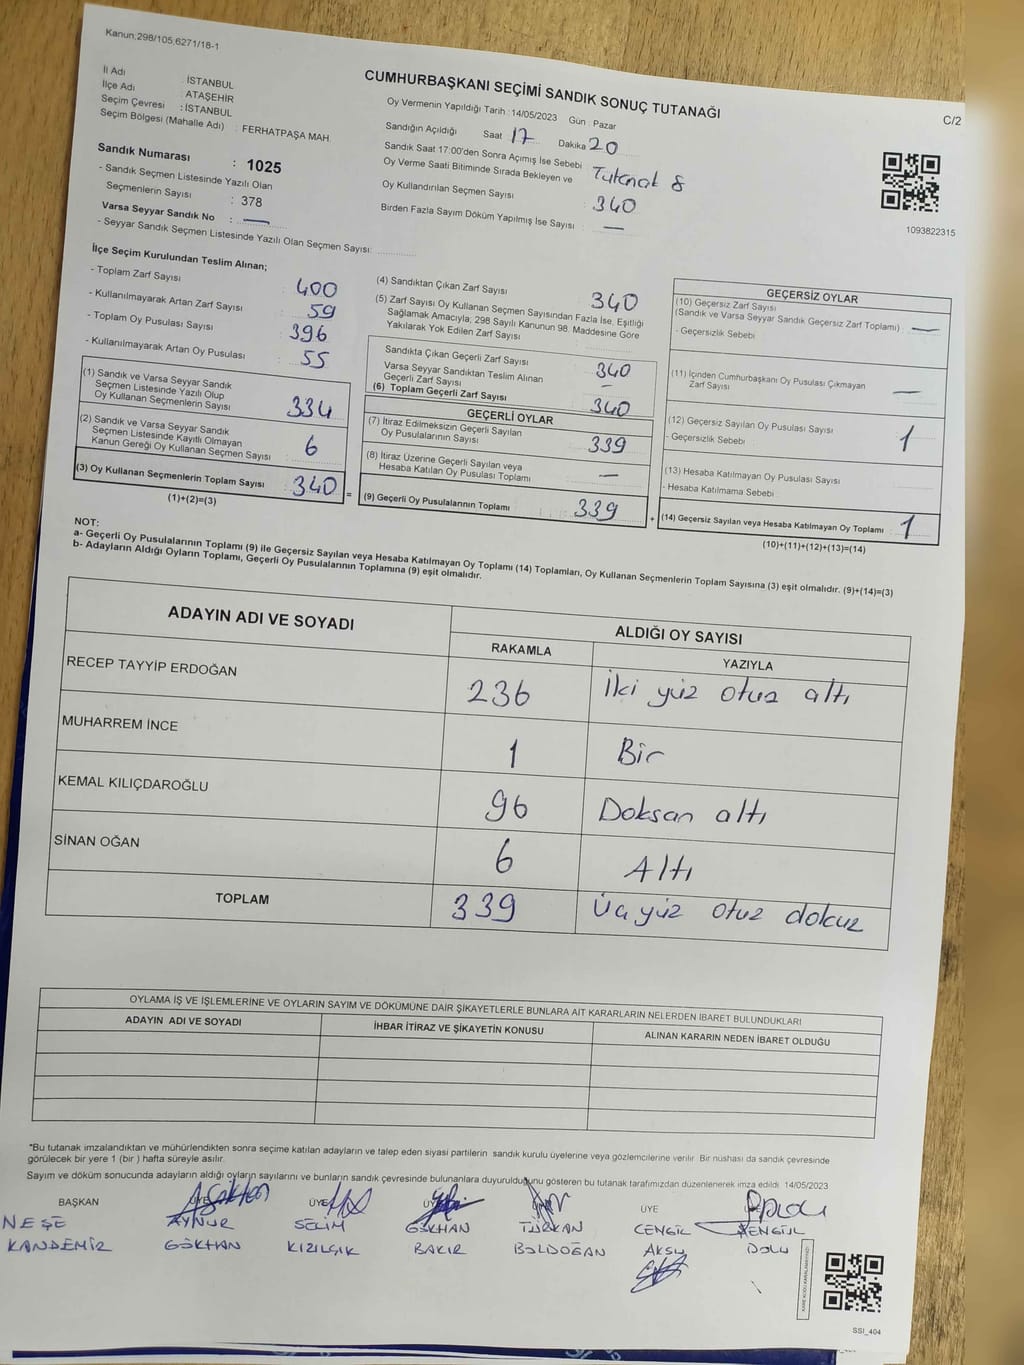 Kanun;298/105,6271/18-1
CUMHURBAŞKANI SEÇİMİ SANDIK SONUÇ TUTANAĞI
C/2
İl Adı İSTANBUL
İlçe Adı : ATAŞEHİR
Seçim Çevresi : İSTANBUL
Seçim Bölgesi (Mahalle Adı) : FERHATPAŞA MAH.
Oy Vermenin Yapıldığı Tarih : 14/05/2023 Gün : Pazar
Sandığın Açıldığı Saat 17 Dakika 20
Sandık Saat 17:00'den Sonra Açılmış İse Sebebi Tutanak 8
Oy Verme Saati Bitiminde Sırada Bekleyen ve
Oy Kullandırılan Seçmen Sayısı : 340
Birden Fazla Sayım Döküm Yapılmış İse Sayısı : —
Sandık Numarası : 1025
- Sandık Seçmen Listesinde Yazılı Olan
Seçmenlerin Sayısı : 378
Varsa Seyyar Sandık No : —
- Seyyar Sandık Seçmen Listesinde Yazılı Olan Seçmen Sayısı:
1093822315
İlçe Seçim Kurulundan Teslim Alınan;
- Toplam Zarf Sayısı 400
- Kullanılmayarak Artan Zarf Sayısı 59
- Toplam Oy Pusulası Sayısı 396
- Kullanılmayarak Artan Oy Pusulası 55
(1) Sandık ve Varsa Seyyar Sandık
Seçmen Listesinde Yazılı Olup
Oy Kullanan Seçmenlerin Sayısı 334
(2) Sandık ve Varsa Seyyar Sandık
Seçmen Listesinde Kayıtlı Olmayan
Kanun Gereği Oy Kullanan Seçmen Sayısı 6
(3) Oy Kullanan Seçmenlerin Toplam Sayısı 340 =
(1)+(2)=(3)
(4) Sandıktan Çıkan Zarf Sayısı : 340
(5) Zarf Sayısı Oy Kullanan Seçmen Sayısından Fazla İse, Eşitliği
Sağlamak Amacıyla; 298 Sayılı Kanunun 98. Maddesine Göre
Yakılarak Yok Edilen Zarf Sayısı
Sandıkta Çıkan Geçerli Zarf Sayısı 340
Varsa Seyyar Sandıktan Teslim Alınan
Geçerli Zarf Sayısı –
(6) Toplam Geçerli Zarf Sayısı 340
GEÇERLİ OYLAR
(7) İtiraz Edilmeksizin Geçerli Sayılan
Oy Pusulalarının Sayısı 339
(8) İtiraz Üzerine Geçerli Sayılan veya
Hesaba Katılan Oy Pusulası Toplamı —
(9) Geçerli Oy Pusulalarının Toplamı 339 +
GEÇERSİZ OYLAR
(10) Geçersiz Zarf Sayısı
(Sandık ve Varsa Seyyar Sandık Geçersiz Zarf Toplamı) : —
- Geçersizlik Sebebi
(11) İçinden Cumhurbaşkanı Oy Pusulası Çıkmayan
Zarf Sayısı —
(12) Geçersiz Sayılan Oy Pusulası Sayısı 1
- Geçersizlik Sebebi
(13) Hesaba Katılmayan Oy Pusulası Sayısı
- Hesaba Katılmama Sebebi
(14) Geçersiz Sayılan veya Hesaba Katılmayan Oy Toplamı 1
(10)+(11)+(12)+(13)=(14)
NOT:
a- Geçerli Oy Pusulalarının Toplamı (9) ile Geçersiz Sayılan veya Hesaba Katılmayan Oy Toplamı (14) Toplamları, Oy Kullanan Seçmenlerin Toplam Sayısına (3) eşit olmalıdır. (9)+(14)=(3)
b- Adayların Aldığı Oyların Toplamı, Geçerli Oy Pusulalarının Toplamına (9) eşit olmalıdır.
ADAYIN ADI VE SOYADI ALDIĞI OY SAYISI
RAKAMLA YAZIYLA
RECEP TAYYİP ERDOĞAN 236 İki yüz otuz altı
MUHARREM İNCE 1 Bir
KEMAL KILIÇDAROĞLU 96 Doksan altı
SİNAN OĞAN 6 Altı
TOPLAM 339 Üç yüz otuz dokuz
OYLAMA İŞ VE İŞLEMLERİNE VE OYLARIN SAYIM VE DÖKÜMÜNE DAİR ŞİKAYETLERLE BUNLARA AİT KARARLARIN NELERDEN İBARET BULUNDUKLARI
ADAYIN ADI VE SOYADI İHBAR İTİRAZ VE ŞİKAYETİN KONUSU ALINAN KARARIN NEDEN İBARET OLDUĞU
*Bu tutanak imzalandıktan ve mühürlendikten sonra seçime katılan adayların ve talep eden siyasi partilerin sandık kurulu üyelerine veya gözlemcilerine verilir. Bir nüshası da sandık çevresinde
görülecek bir yere 1 (bir ) hafta süreyle asılır.
Sayım ve döküm sonucunda adayların aldığı oyların sayılarını ve bunların sandık çevresinde bulunanlara duyurulduğunu gösteren bu tutanak tarafımızdan düzenlenerek imza edildi. 14/05/2023
BAŞKAN ÜYE ÜYE ÜYE ÜYE
NEŞE AYNUR SELİM GÖKHAN TÜRKAN CENGİZ ŞENGÜL
KANDEMİR GÖKHAN KIZILIŞIK BAKIR BOLDOĞAN AKSU DOLU
SSI_404